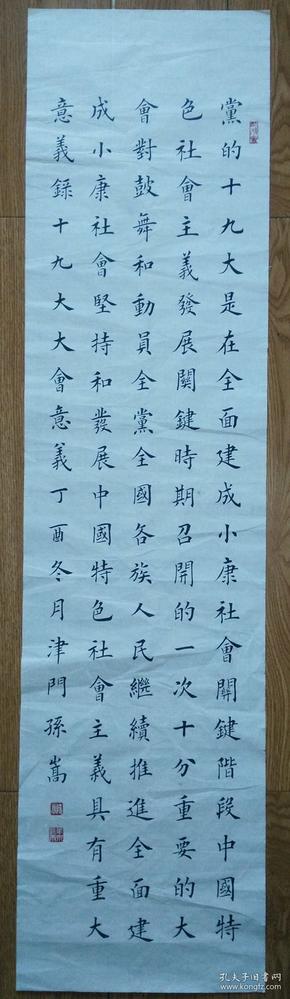 黨的十九大是在全面建成小康社會關鍵階段中國特
色社會主義發展關鍵時期召開的一次十分重要的大
會對鼓舞和動員全黨全國各族人民繼續推進全面建
成小康社會堅持和發展中國特色社會主義具有重大
意義録十九大大會意義丁酉冬月津門孫嵩
孔夫子旧书网
www.kongfz.com